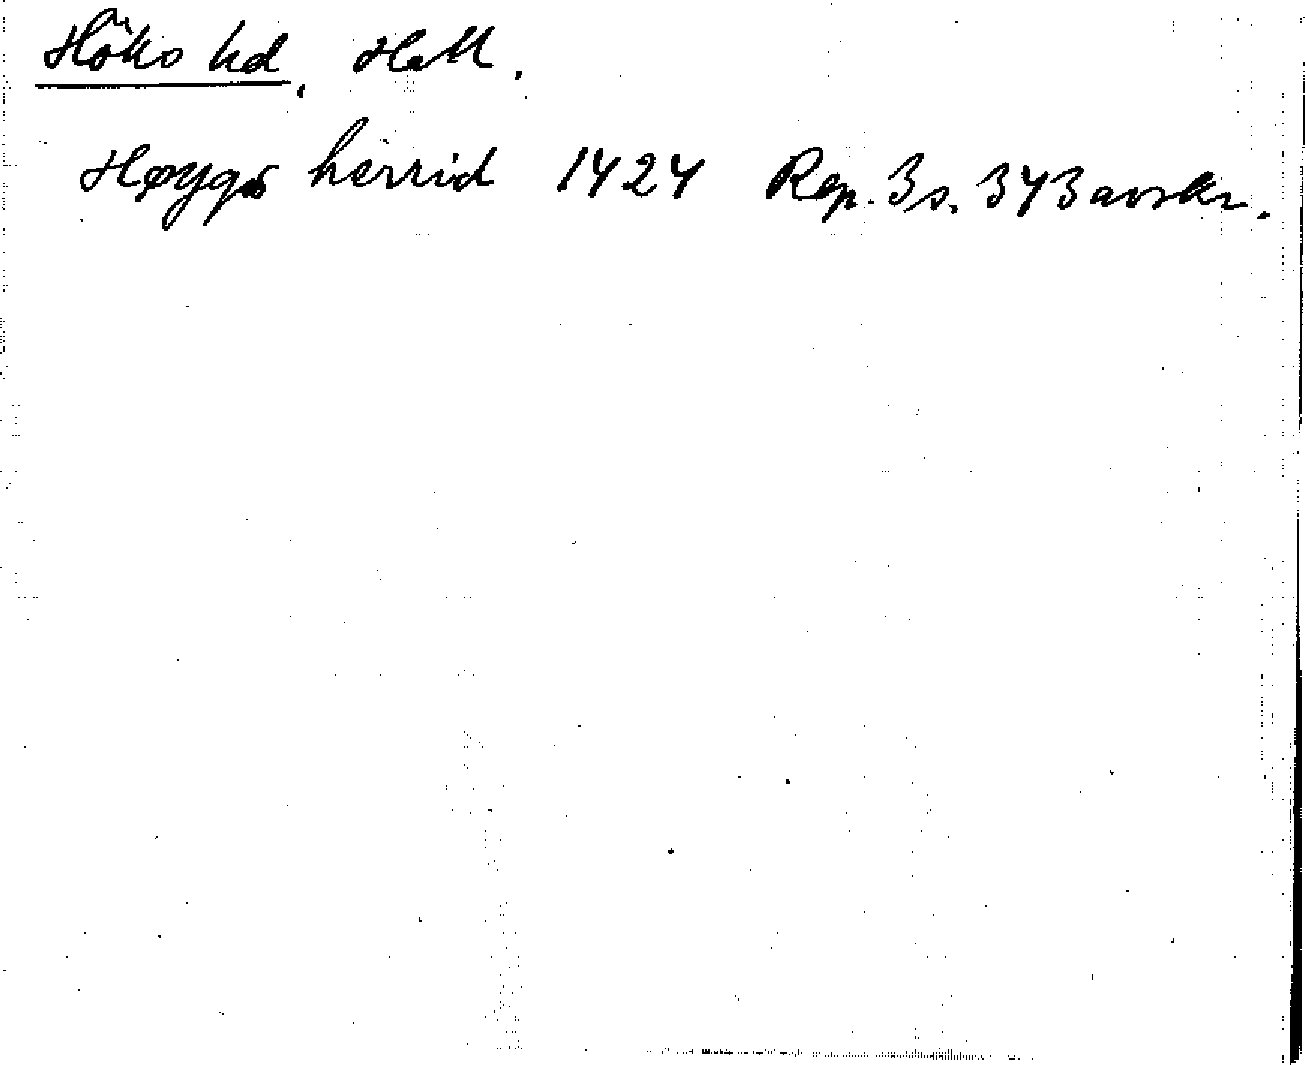 Höks hd, Hall.
Høygs herrid 1424 Rep. 3 s. 343 avskr.